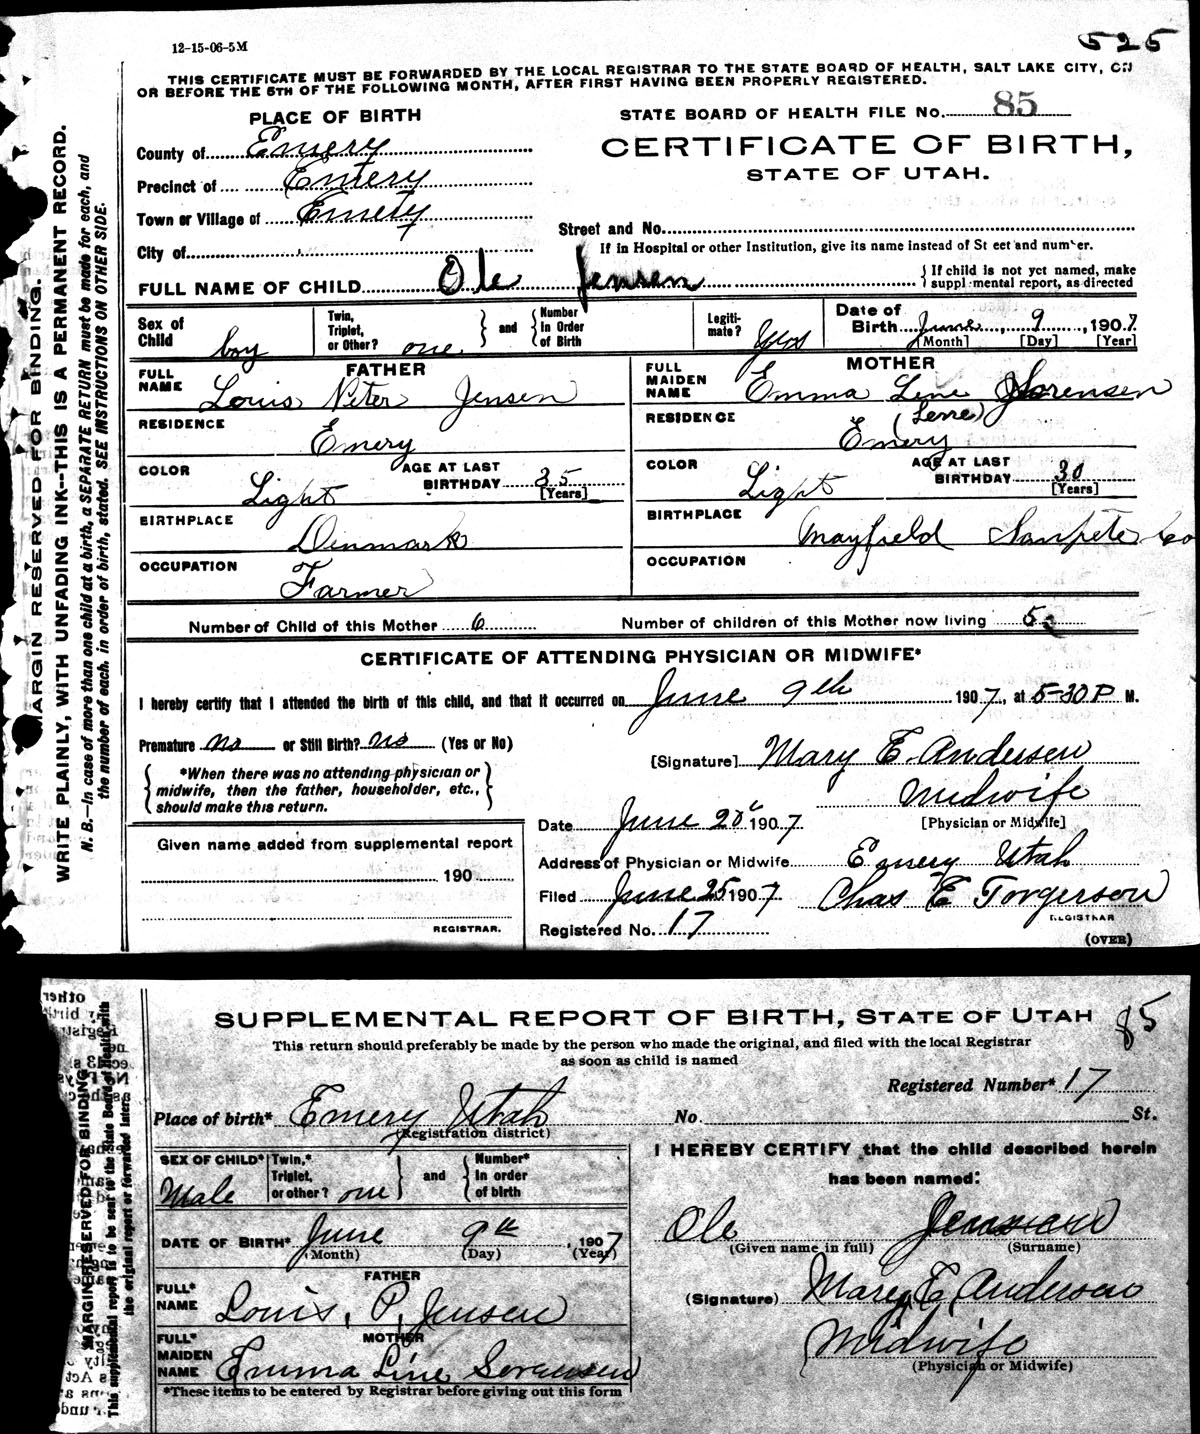 12-15-06-5M
525
THIS CERTIFICATE MUST BE FORWARDED BY THE LOCAL REGISTRAR TO THE STATE BOARD OF HEALTH, SALT LAKE CITY, ON
OR BEFORE THE 5TH OF THE FOLLOWING MONTH, AFTER FIRST HAVING BEEN PROPERLY REGISTERED.
PLACE OF BIRTH
STATE BOARD OF HEALTH FILE No. 85
County of Emery
CERTIFICATE OF BIRTH,
Precinct of Emery
STATE OF UTAH.
Town or Village of Emery
Street and No.
City of
If in Hospital or other Institution, give its name instead of St eet and number.
FULL NAME OF CHILD Ole Jensen
{ If child is not yet named, make
suppl mental report, as directed
Sex of Child boy
Twin, Triplet, or Other? one } and { Number In Order of Birth
Legiti-mate? Yes
Date of Birth June, 9, 1907
[Month] [Day] [Year]
FATHER
FULL NAME Louis Peter Jensen
MOTHER
FULL MAIDEN NAME Emma Line Sorensen
(Lene)
RESIDENCE Emery
RESIDENCE Emery
COLOR Light AGE AT LAST BIRTHDAY 35 [Years]
COLOR Light AGE AT LAST BIRTHDAY 30 [Years]
BIRTHPLACE Denmark
BIRTHPLACE Mayfield Sanpete Co
OCCUPATION Farmer
OCCUPATION
Number of Child of this Mother 6
Number of children of this Mother now living 5
CERTIFICATE OF ATTENDING PHYSICIAN OR MIDWIFE*
I hereby certify that I attended the birth of this child, and that it occurred on June 9th 1907, at 5-30 P M.
Premature no or Still Birth? no (Yes or No)
[Signature] Mary E. Andersen
Midwife
[Physician or Midwife]
{ *When there was no attending physician or
midwife, then the father, householder, etc.,
should make this return. }
Date June 20 1907
Given name added from supplemental report
190
REGISTRAR.
Address of Physician or Midwife Emery Utah
Filed June 25 1907 Chas E Torgerson
REGISTRAR
Registered No. 17
(OVER)
MARGIN RESERVED FOR BINDING.
WRITE PLAINLY, WITH UNFADING INK--THIS IS A PERMANENT RECORD.
N. B.—In case of more than one child at a birth, a SEPARATE RETURN must be made for each, and
the number of each, in order of birth, stated. SEE INSTRUCTIONS ON OTHER SIDE.
SUPPLEMENTAL REPORT OF BIRTH, STATE OF UTAH
85
This return should preferably be made by the person who made the original, and filed with the local Registrar
as soon as child is named
Registered Number* 17
Place of birth* Emery Utah No. St.
(Registration district)
SEX OF CHILD* Male
Twin,* Triplet, or other? one } and { Number* In order of birth
I HEREBY CERTIFY that the child described herein
has been named:
DATE OF BIRTH* June 9th, 1907
(Month) (Day) (Year)
Ole
(Given name in full) (Surname)
FATHER
FULL* NAME Louis, P, Jensen
(Signature) Mary E, Anderson
Midwife
(Physician or Midwife)
MOTHER
FULL* MAIDEN NAME Emma Line Sorensen
*These items to be entered by Registrar before giving out this form
MARGIN RESERVED FOR BINDING
This supplemental report is to be sent to the State Board of Health with
the original report or forwarded later.